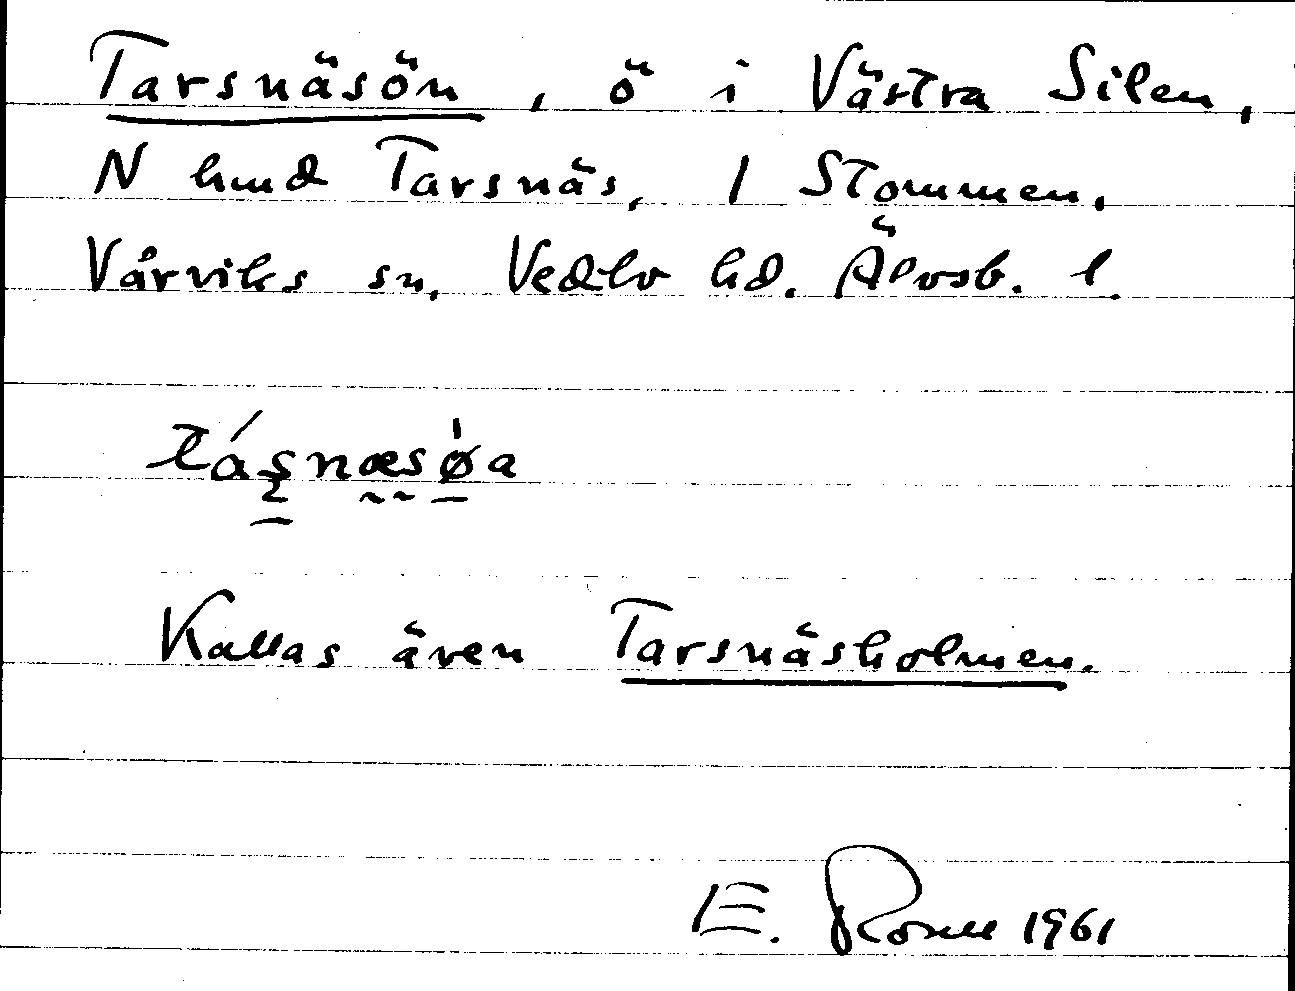 Tarsnäsön, ö i Västra Silen,
N hmd Tarsnäs, 1 Stommen,
Vårviks sn, Vedbo hd. Älvsb. l.
Kallas även Tarsnäsholmen.
E. 1961